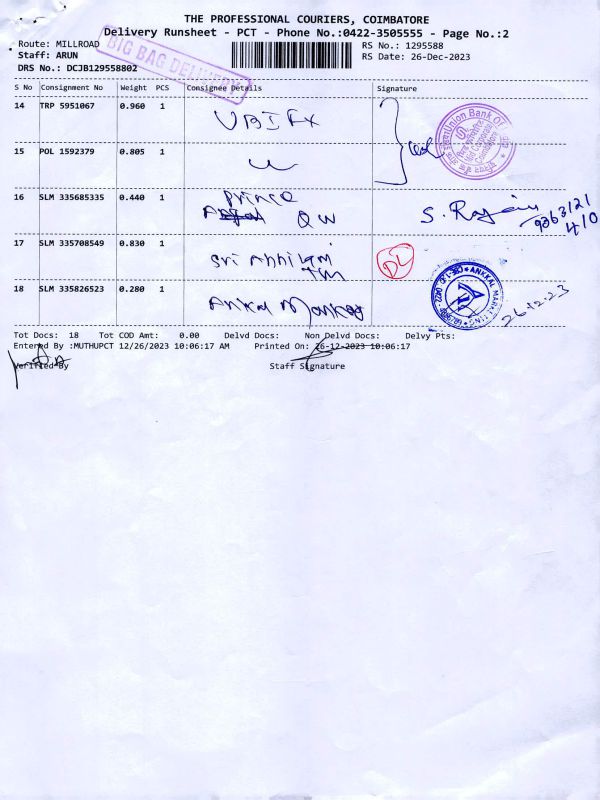 THE PROFESSIONAL COURIERS, COIMBATORE
Delivery Runsheet - PCT - Phone No.:0422-3505555 - Page No.:2
Route: MILLROAD
RS No.: 1295588
Staff: ARUN
RS Date: 26-Dec-2023
DRS No.: DCJB129558802
BIG BAG DELIVERY
S No Consignment No Weight PCS Consignee Details Signature
14 TRP 5951067 0.960 1 UBI Fx
15 POL 1592379 0.805 1
Union Bank Of
Coimbatore
16 SLM 335685335 0.440 1 Prince
QW
S.
17 SLM 335708549 0.830 1 Sri Abhi
TM
DL
18 SLM 335826523 0.280 1
ANKKAL MARKETING
26-12-23
Tot Docs: 18 Tot COD Amt: 0.00 Delvd Docs: Non Delvd Docs: Delvy Pts:
Entered By :MUTHUPCT 12/26/2023 10:06:17 AM Printed On: 26-12-2023 10:06:17
Verified By Staff Signature